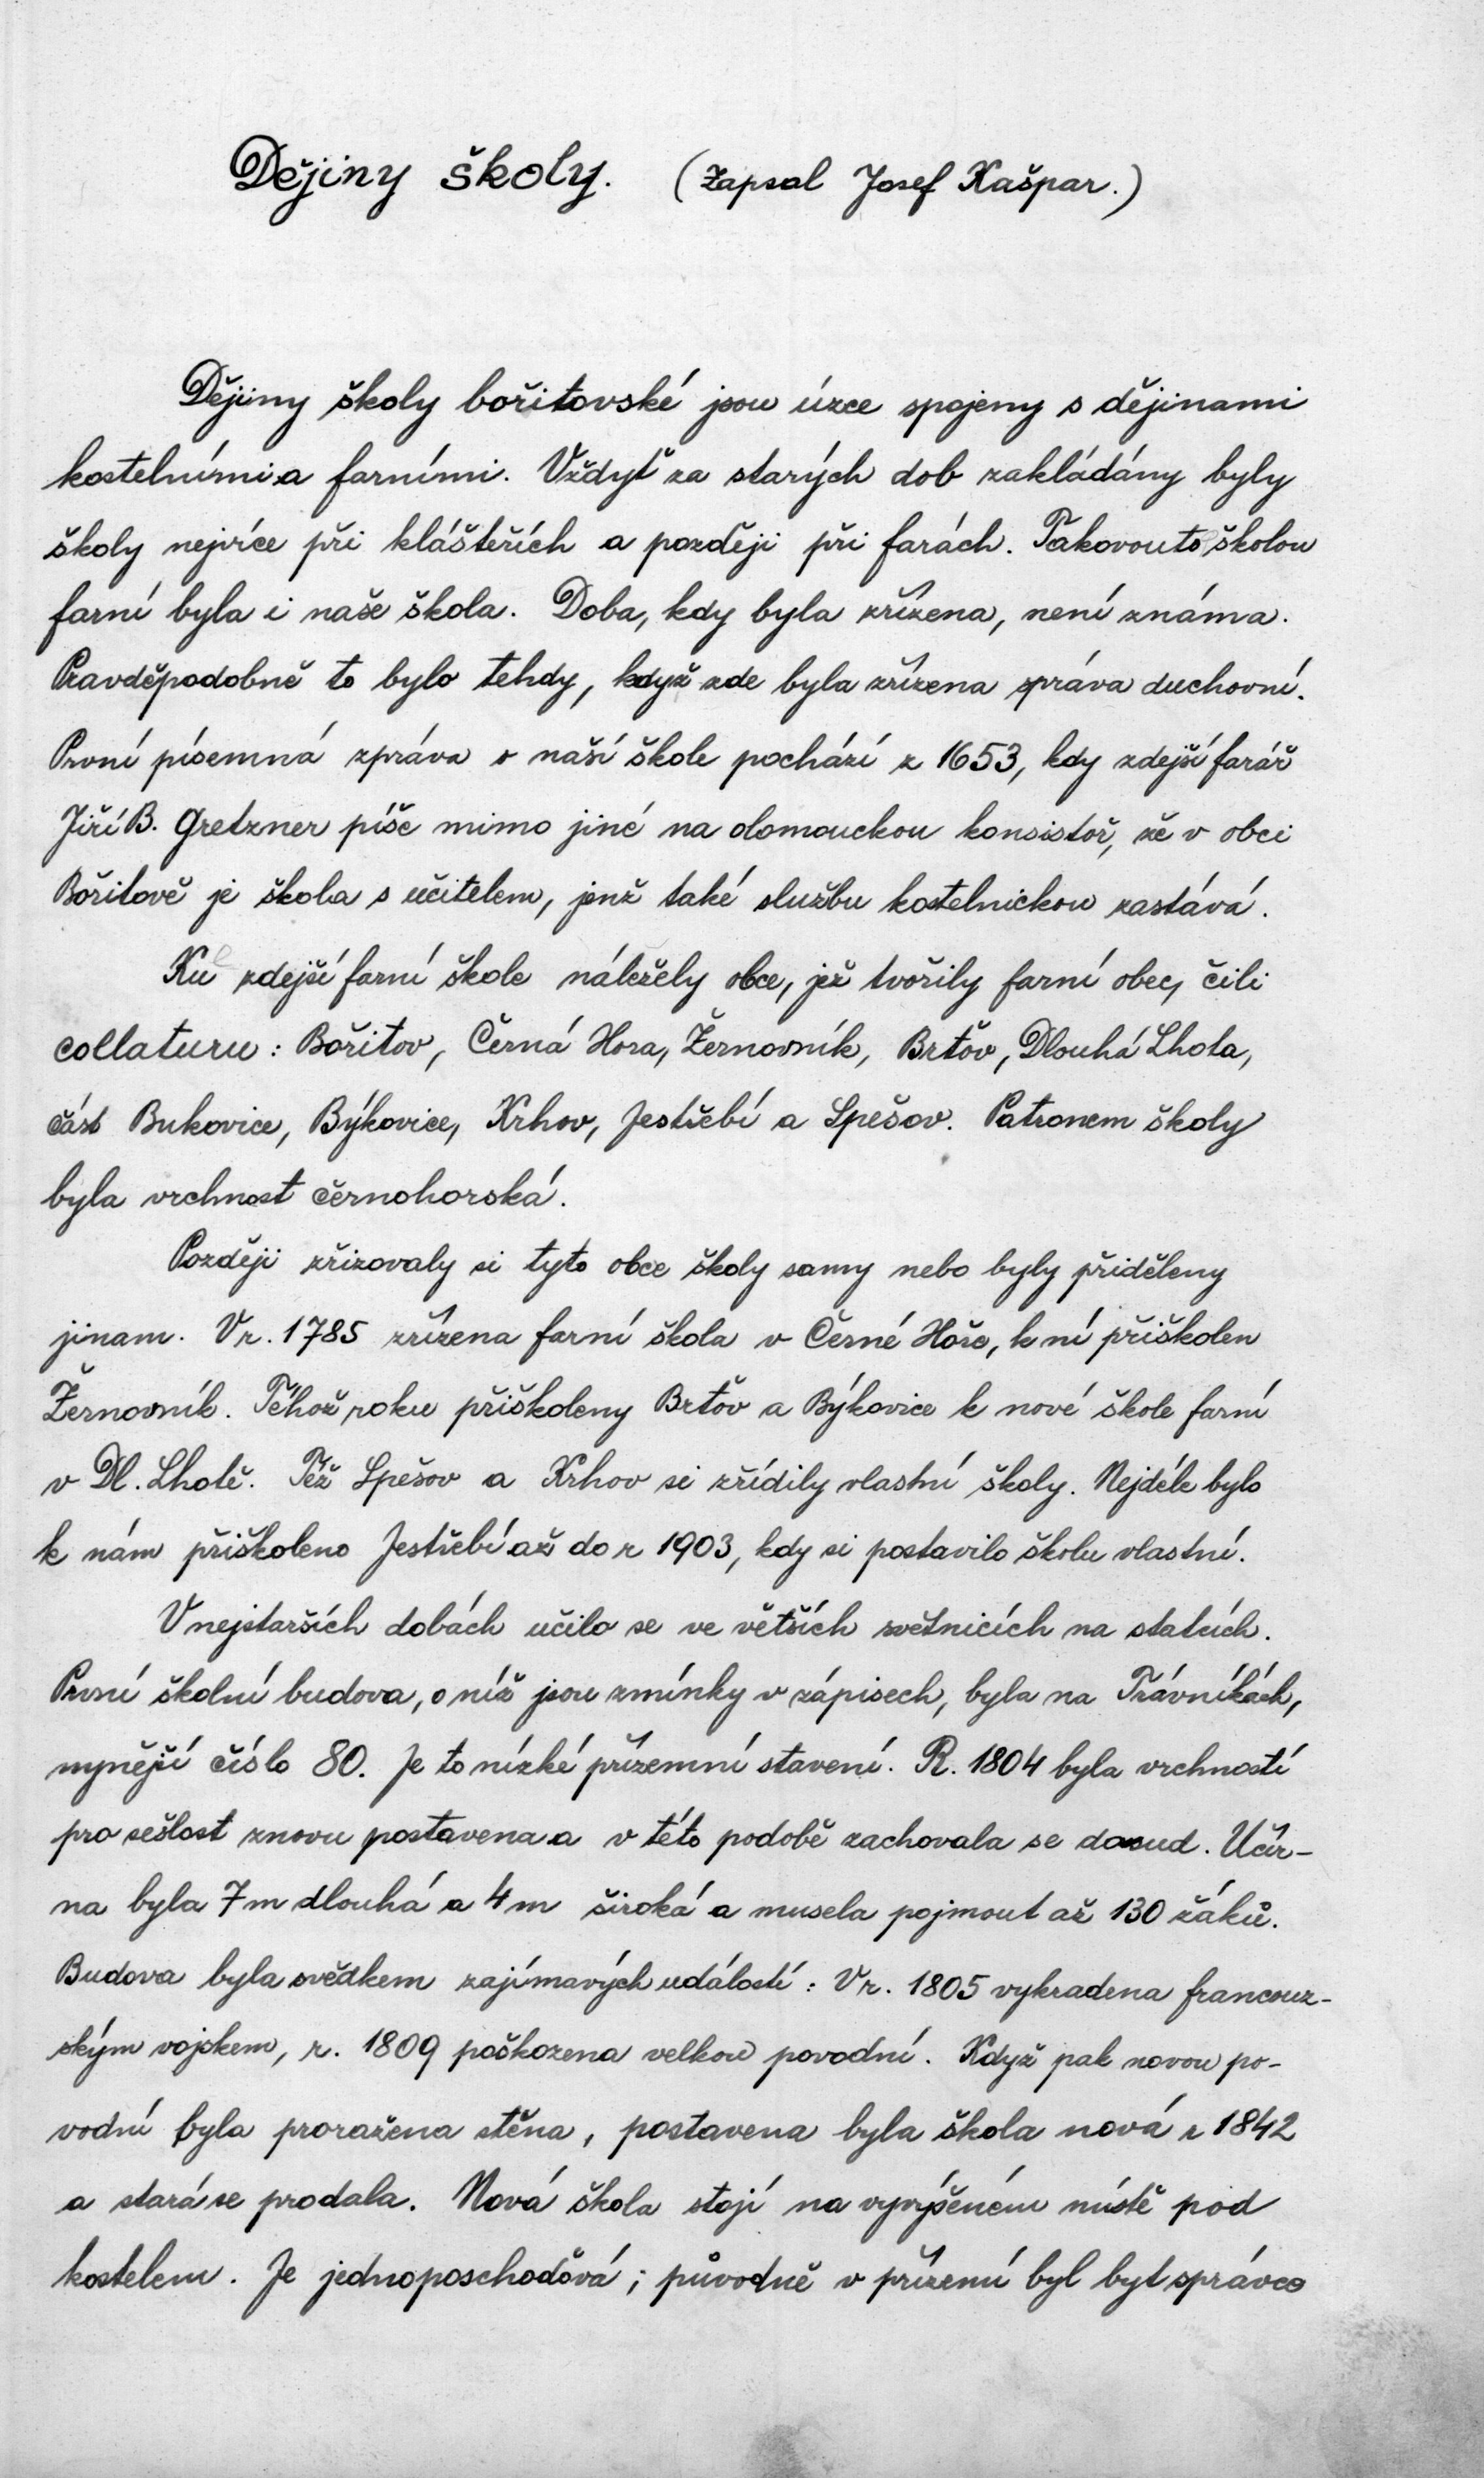 Dějiny školy. (Zapsal Josef Kašpar.)
Dějiny školy bořitovské jsou úzce spojeny s dějinami
kostelními a farními. Vždyť za starých dob zakládány byly
školy nejvíce při klášteřích a později při farách. Takovouto školou
farní byla i naše škola. Doba, kdy byla zřízena, není známa.
Pravděpodobně to bylo tehdy, když zde byla zřízena správa duchovní.
První písemná zpráva o naší škole pochází z 1653, kdy zdejší farář
Jiří B. Gretzner píše mimo jiné na olomouckou konsistoř, že v obci
Bořitově je škola s učitelem, jenž také službu kostelnickou zastává.
Ku zdejší farní škole náležely obce, jež tvořily farní obec, čili
collaturu: Bořitov, Černá Hora, Žernovník, Brťov, Dlouhá Lhota,
část Bukovice, Býkovice, Krhov, Jestřebí a Spešov. Patronem školy
byla vrchnost černohorská.
Později zřizovaly si tyto obce školy samy nebo byly přiděleny
jinam. V r. 1785 zřízena farní škola v Černé Hoře, k ní přiškolen
Žernovník. Téhož roku přiškoleny Brťov a Býkovice k nové škole farní
v Dl. Lhotě. Též Spešov a Krhov si zřídily vlastní školy. Nejdéle bylo
k nám přiškoleno Jestřebí až do r 1903, kdy si postavilo školu vlastní.
V nejstarších dobách učilo se ve větších světnicích na statcích.
První školní budova, o níž jsou zmínky v zápisech, byla na Trávníkách,
nynější číslo 80. Je to nízké přízemní stavení. R. 1804 byla vrchností
pro sešlost znovu postavena a v této podobě zachovala se dosud. Učír-
na byla 7 m dlouhá a 4 m široká a musela pojmout až 130 žáků.
Budova byla svědkem zajímavých událostí: V r. 1805 vykradena francouz-
ským vojskem, r. 1809 poškozena velkou povodní. Když pak novou po-
vodní byla proražena stěna, postavena byla škola nová r 1842
a stará se prodala. Nová škola stojí na vyvýšeném místě pod
kostelem. Je jednoposchoďová; původně v přízemí byl byt správce